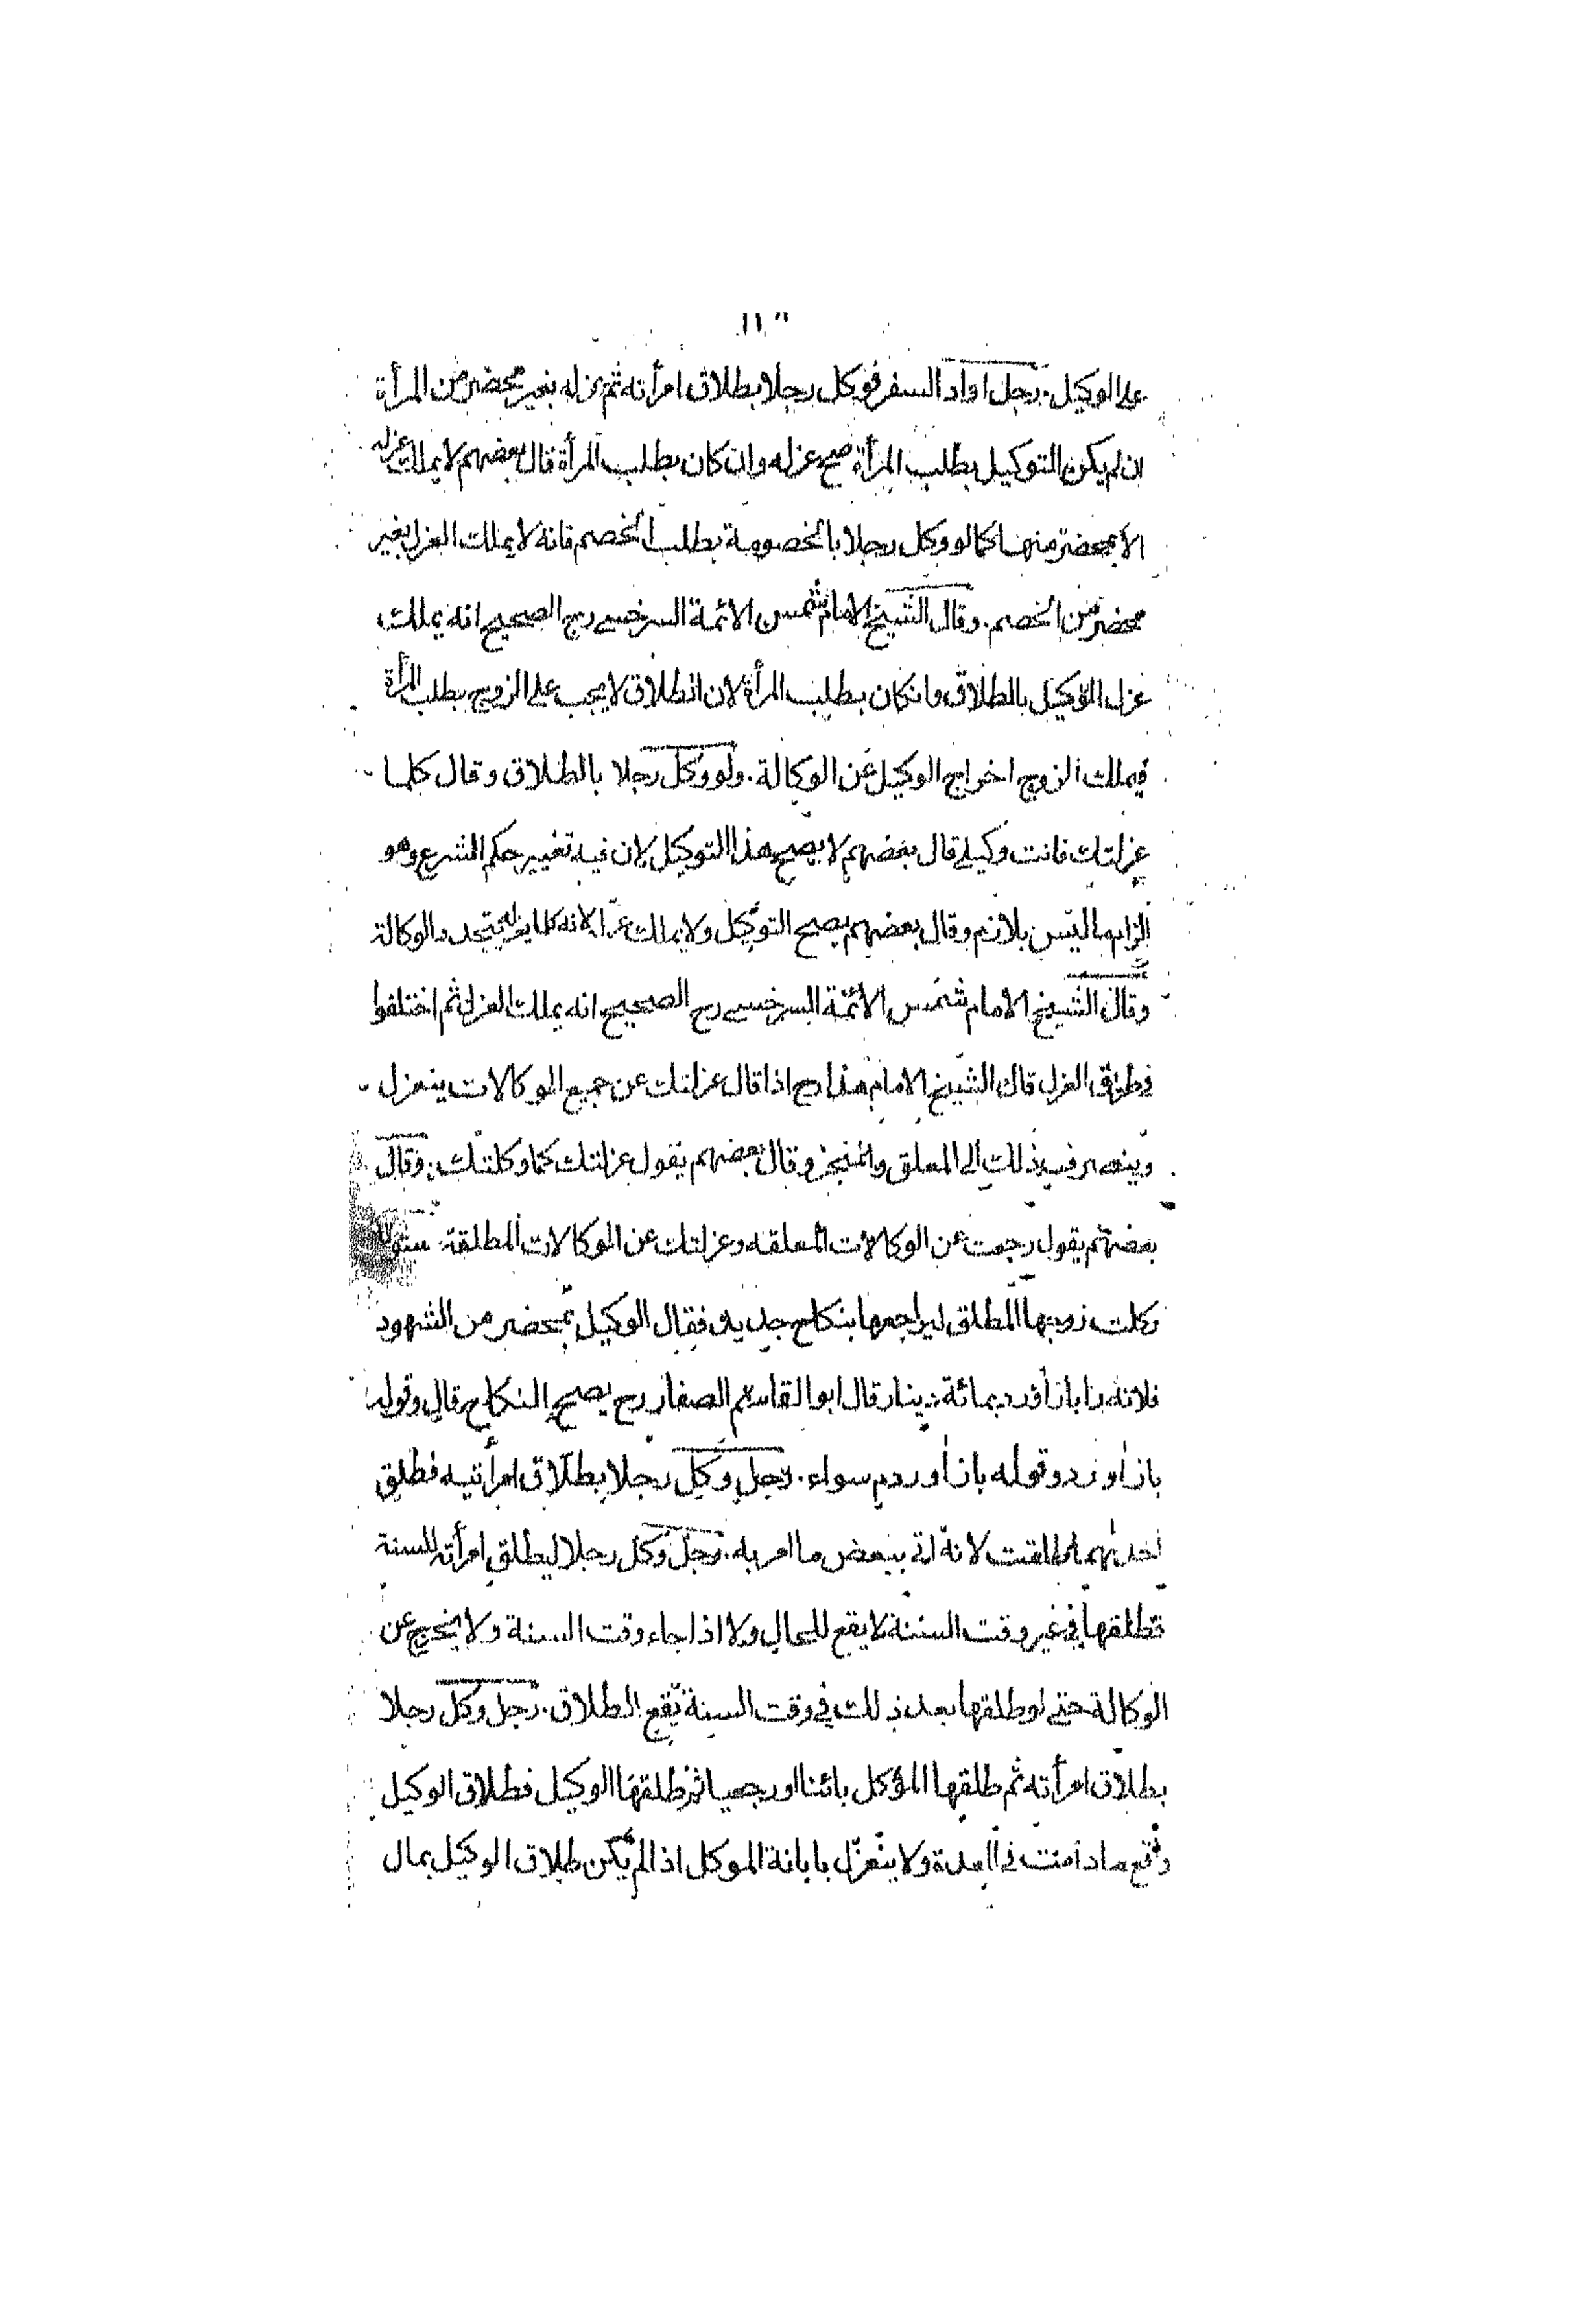 على الوكيل. رجل اراد السفر فوكل رجلا بطلاق امرأته ثم عزله بغير محضر من المرأة
ان لم يكن التوكيل بطلب المرأة صح عزله وان كان بطلب المرأة قال بعضهم لا يملك عزله
الا بمحضر منها كما لو وكل رجلا بالخصومة بطلب الخصم فانه لا يملك العزل بغير
محضر من الخصم. وقال الشيخ الامام شمس الائمة السرخسي رح الصحيح انه يملك
عزل الوكيل بالطلاق وان كان بطلب المرأة لان الطلاق لا يجب على الزوج بطلب المرأة
فيملك الزوج اخراج الوكيل عن الوكالة. ولو وكل رجلا بالطلاق وقال كلما
عزلتك فانت وكيلي قال بعضهم لا يصح هذا التوكيل لان فيه تغيير حكم الشرع وهو
الزام ما ليس بلازم وقال بعضهم يصح التوكيل ولا يملك عزله لانه كلما عزله يتجدد الوكالة
وقال الشيخ الامام شمس الائمة السرخسي رح الصحيح انه يملك العزل ثم اختلفوا
في طريق العزل قال الشيخ الامام هذا رح اذا قال عزلتك عن جميع الوكالات ينعزل
وينصرف ذلك الى المعلق والمنجز وقال بعضهم يقول عزلتك كما وكلتك. وقال
بعضهم يقول رجعت عن الوكالات المعلقه وعزلتك عن الوكالات المطلقة
وكلت زوجها المطلق ليراجعها بنكاح جديد فقال الوكيل بمحضر من الشهود
فلانه را باز آورد بمائة دينار قال ابو القاسم الصفار رح يصح النكاح قال وقوله
باز اورد وقوله باز اوردم سواء. رجل وكل رجلا بطلاق امرأتيه فطلق
احدىهما طلقت لانه اتى ببعض ما امر به. رجل وكل رجلا ليطلق امرأته للسنة
فطلقها في غير وقت السنة لا يقع للحال ولا اذا جاء وقت السنة ولا يخرج عن
الوكالة حتى لو طلقها بعد ذلك في وقت السنة يقع الطلاق. رجل وكل رجلا
بطلاق امرأته ثم طلقها الموكل بائنا او رجعيا ثم طلقها الوكيل فطلاق الوكيل
واقع ما دامت في العدة ولا ينعزل بابانة الموكل اذا لم يكن طلاق الوكيل بمال